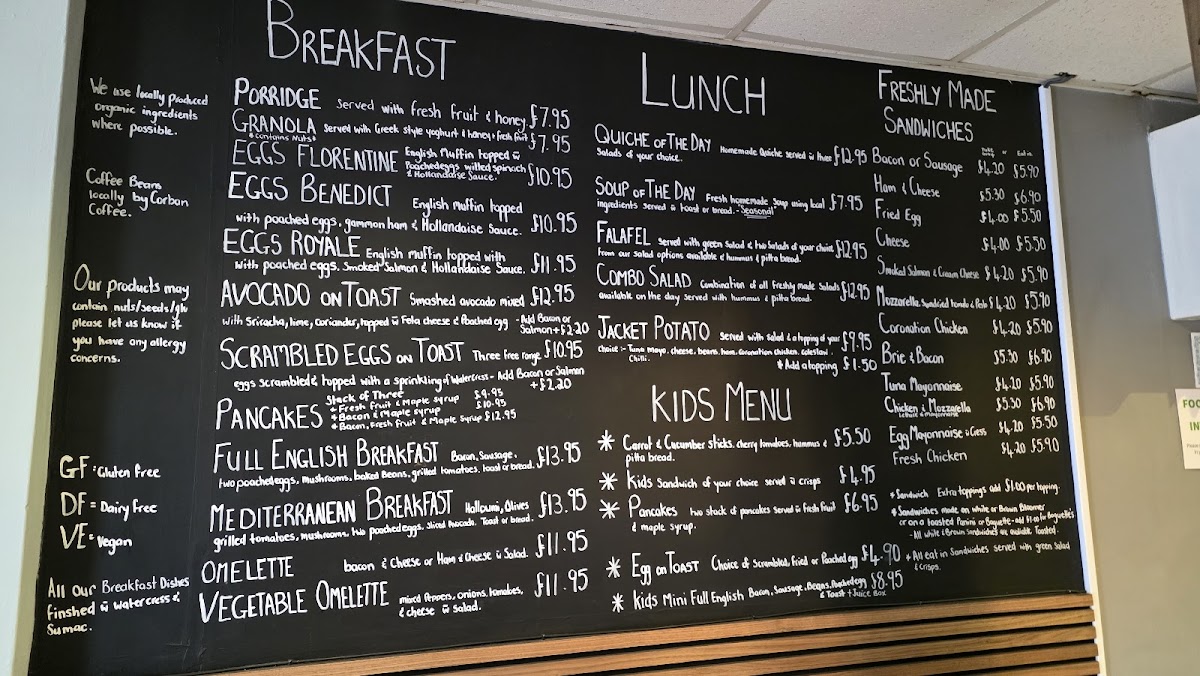 We use locally produced
organic ingredients
where possible.
Coffee Beans
locally by Carbon
Coffee.
Our products may
contain nuts/seeds/glu
please let us know if
you have any allergy
concerns.
GF = Gluten Free
DF = Dairy Free
VE = Vegan
All our Breakfast Dishes
finshed w̄ watercress &
Sumac.
BREAKFAST
PORRIDGE served with fresh fruit & honey £7.95
GRANOLA served with Greek style yoghurt & honey & fresh fruit £7.95
* contains Nuts *
EGGS FLORENTINE English Muffin topped w̄
Poached eggs wilted spinach
& Hollandaise Sauce. £10.95
EGGS BENEDICT English muffin topped
with poached eggs, gammon ham & Hollandaise Sauce. £10.95
EGGS ROYALE English muffin topped with
with poached eggs. Smoked Salmon & Hollandaise Sauce. £11.95
AVOCADO ON TOAST Smashed avocado mixed £12.95
with Sriracha, lime, coriander, topped w̄ Feta cheese & Poached egg - Add Bacon or
Salmon + £2.20
SCRAMBLED EGGS ON TOAST Three free range £10.95
eggs scrambled & topped with a sprinkling of Watercress - Add Bacon or Salmon
+ £2.20
PANCAKES Stack of Three
+ Fresh Fruit & Maple syrup £9.95
+ Bacon & Maple syrup £10.95
+ Bacon, Fresh Fruit & Maple Syrup £12.95
FULL ENGLISH BREAKFAST Bacon, Sausage,
two poached eggs, mushrooms, baked Beans, grilled tomatoes, toast or bread. £13.95
MEDITERRANEAN BREAKFAST Halloumi, Olives
grilled tomatoes, mushrooms, two poached eggs. Sliced Avocado. Toast or bread. £13.95
OMELETTE bacon & Cheese or Ham & Cheese w̄ Salad. £11.95
VEGETABLE OMELETTE mixed Peppers, onions, tomatoes,
& cheese w̄ salad. £11.95
LUNCH
QUICHE OF THE DAY Homemade Quiche served w̄ three £12.95
Salads of your choice.
SOUP OF THE DAY Fresh homemade Soup using local £7.95
ingredients served w̄ toast or bread. - Seasonal
FALAFEL Served with green Salad & two Salads of your choice £12.95
from our salad options available & hummus & pitta bread.
COMBO SALAD Combination of all Freshly made Salads £12.95
available on the day served with hummus & pitta bread.
JACKET POTATO Served with salad & a topping of your £9.95
choice :- Tuna Mayo, cheese, beans, ham, coronation chicken, coleslaw,
Chilli. * Add a topping £1.50
KIDS MENU
* Carrot & Cucumber sticks, cherry tomatoes, hummus & £5.50
pitta bread.
* Kids Sandwich of your choice served w̄ crisps £4.95
* Pancakes two stack of pancakes served w̄ fresh fruit £6.95
& maple syrup.
* Egg on TOAST Choice of Scrambled, fried or Poached egg £4.90
* Kids Mini Full English Bacon, Sausage, Beans, Poached egg £8.95
& Toast + Juice Box
FRESHLY MADE
SANDWICHES
or Eat in
Bacon or Sausage £4.20 £5.90
Ham & Cheese £5.30 £6.90
Fried Egg £4.00 £5.50
Cheese £4.00 £5.50
Smoked Salmon & Cream Cheese £4.20 £5.90
Mozzarella, Sundried tomato & Pesto £4.20 £5.90
Coronation Chicken £4.20 £5.90
Brie & Bacon £5.30 £6.90
Tuna Mayonnaise £4.20 £5.90
Chicken & Mozzarella £5.30 £6.90
Lettuce & mayonnaise
Egg Mayonnaise & Cress £4.20 £5.50
Fresh Chicken £4.20 £5.90
* Sandwich Extra toppings add £1.00 per topping.
* Sandwiches made on white or Brown Bloomer
or on a toasted Panini or Baguette - add £1.00 for Baguette's
- All white & Brown Sandwiches are available Toasted.
* All eat in Sandwiches served with green salad
& Crisps.
FOO
IN